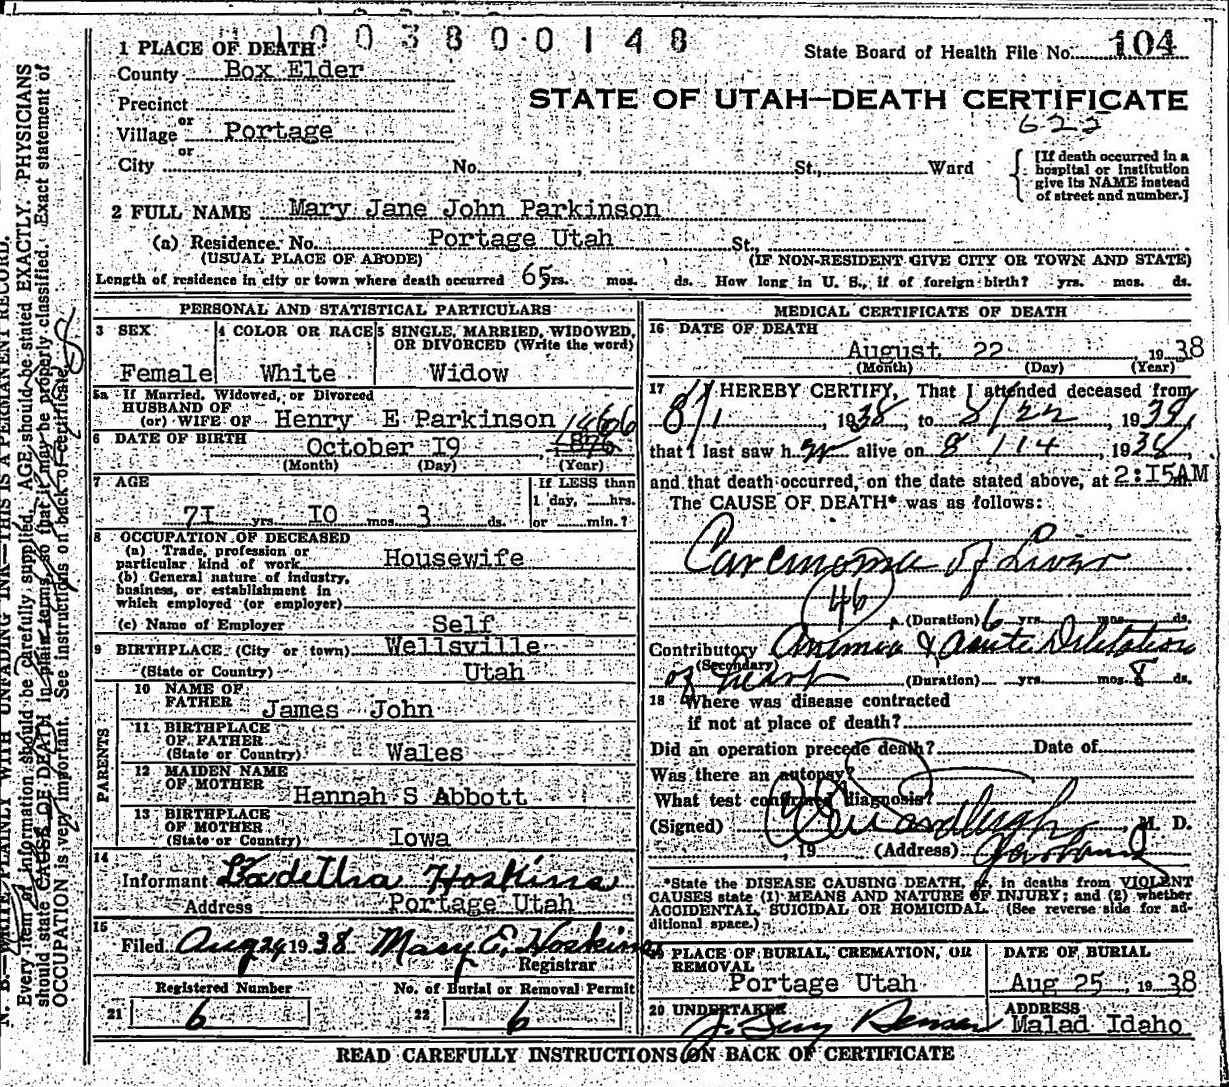 1003800148
1 PLACE OF DEATH
State Board of Health File No. 104
County Box Elder
STATE OF UTAH—DEATH CERTIFICATE
622
Precinct
or
Village Portage
or
City No. St., Ward
[If death occurred in a
hospital or institution
give its NAME instead
of street and number.]
2 FULL NAME Mary Jane John Parkinson
(a) Residence. No. Portage Utah St.,
(USUAL PLACE OF ABODE) (IF NON-RESIDENT GIVE CITY OR TOWN AND STATE)
Length of residence in city or town where death occurred 65 yrs. mos. ds. How long in U. S., if of foreign birth? yrs. mos. ds.
PERSONAL AND STATISTICAL PARTICULARS
3 SEX
Female
4 COLOR OR RACE
White
5 SINGLE, MARRIED, WIDOWED,
OR DIVORCED (Write the word)
Widow
5a If Married, Widowed, or Divorced
HUSBAND OF
(or) WIFE OF Henry E Parkinson
6 DATE OF BIRTH October I9 1866
(Month) (Day) (Year)
7 AGE
7I yrs. IO mos. 3 ds.
If LESS than
1 day, hrs.
or min.?
8 OCCUPATION OF DECEASED
(a) Trade, profession or
particular kind of work Housewife
(b) General nature of industry,
business, or establishment in
which employed (or employer)
(c) Name of Employer Self
9 BIRTHPLACE (City or town) Wellsville
(State or Country) Utah
PARENTS
10 NAME OF
FATHER James John
11 BIRTHPLACE
OF FATHER
(State or Country) Wales
12 MAIDEN NAME
OF MOTHER Hannah S Abbott
13 BIRTHPLACE
OF MOTHER
(State or Country) Iowa
14
Informant Hoskins
Address Portage Utah
15
Filed Aug 24 1938 Mary E. Hoskins
Registrar
Registered Number No. of Burial or Removal Permit
21 6 22 6
MEDICAL CERTIFICATE OF DEATH
16 DATE OF DEATH
August 22, 1938
(Month) (Day) (Year)
17 I HEREBY CERTIFY, That I attended deceased from
8/1, 1938 to 8/22, 1938,
that I last saw her alive on 8/14, 1938
and that death occurred, on the date stated above, at 2:I5AM
The CAUSE OF DEATH* was as follows:
Carcinoma of Liver
46
(Duration) 6 yrs. mos. ds.
Contributory Anemia & Acute Dilatation
(Secondary)
of heart (Duration) yrs. mos. 8 ds.
18 Where was disease contracted
if not at place of death?
Did an operation precede death? Date of
Was there an autopsy?
What test confirmed diagnosis?
(Signed) M. D.
, 19 (Address)
*State the DISEASE CAUSING DEATH, or, in deaths from VIOLENT
CAUSES state (1) MEANS AND NATURE OF INJURY; and (2) whether
ACCIDENTAL, SUICIDAL OR HOMICIDAL. (See reverse side for ad-
ditional space.)
19 PLACE OF BURIAL, CREMATION, OR
REMOVAL
Portage Utah
DATE OF BURIAL
Aug 25, 1938
20 UNDERTAKER
ADDRESS
Malad Idaho
READ CAREFULLY INSTRUCTIONS ON BACK OF CERTIFICATE
N. B.—WRITE PLAINLY WITH UNFADING INK—THIS IS A PERMANENT RECORD.
Every item of information should be carefully supplied. AGE should be stated EXACTLY. PHYSICIANS
should state CAUSE OF DEATH in plain terms, so that it may be properly classified. Exact statement of
OCCUPATION is very important. See instructions on back of certificate.